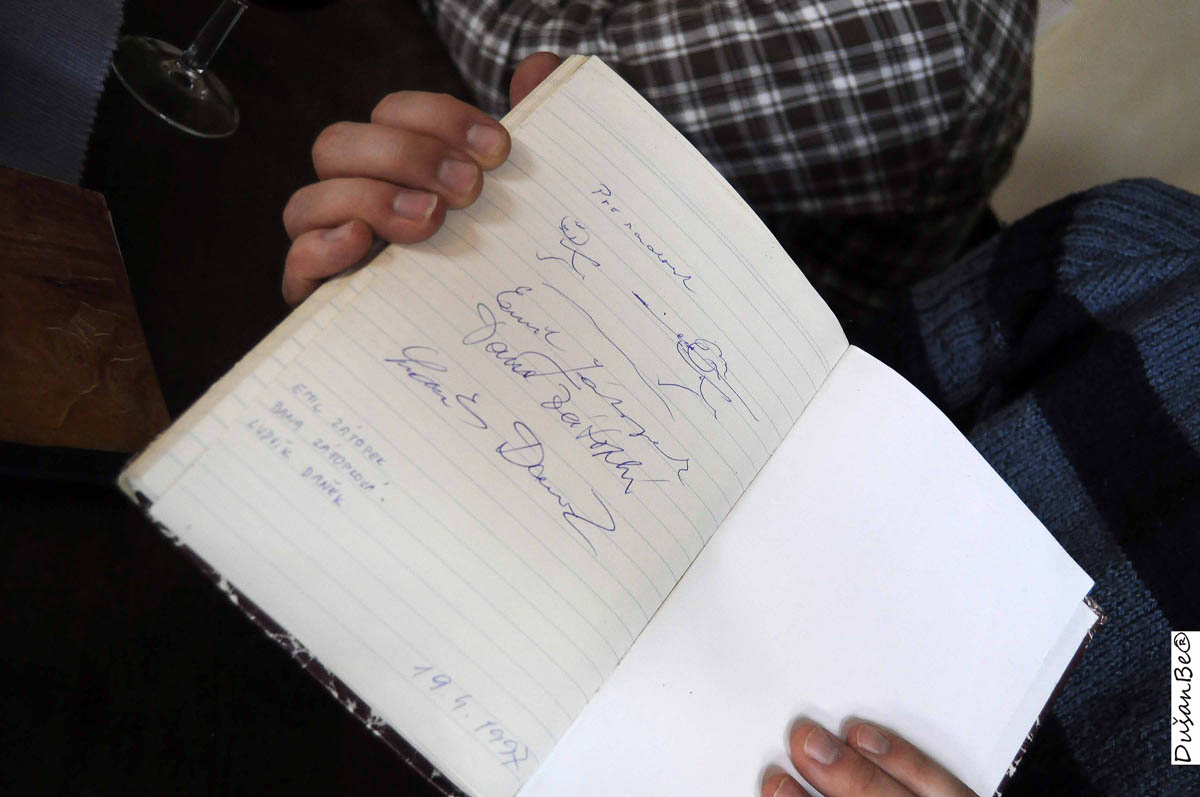 Pro radost
Emil Zátopek
Dana Zátopková
Daněk
EMIL ZÁTOPEK
DANA ZÁTOPKOVÁ
LUDVÍK DANĚK
19 4. 1997
DušanBe®